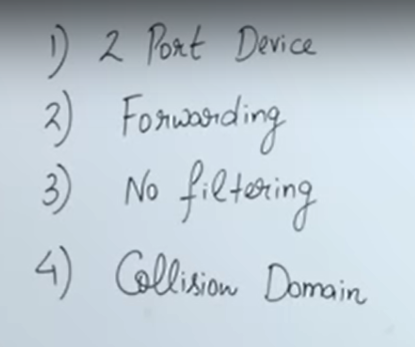 1) 2 Port Device
2) Forwarding
3) No filtering
4) Collision Domain